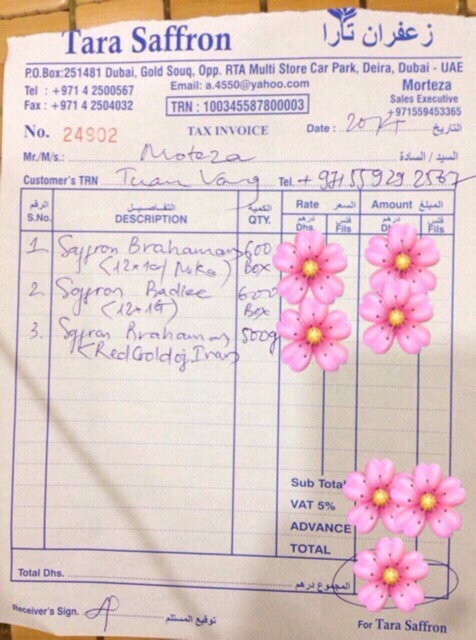 Tara Saffron
زعفران تارا
P.O.Box:251481 Dubai, Gold Souq, Opp. RTA Multi Store Car Park, Deira, Dubai - UAE
Tel : +971 4 2500567
Email: a.4550@yahoo.com
Morteza
Fax : +971 4 2504032
TRN : 100345587800003
Sales Executive
+971559453365
No. 24902
TAX INVOICE
Date :
التاريخ
Mr./M/s.: Moteza
السيد / السادة
Customer's TRN Tuan Vang Tel. + 971 55 929 2567
الرقم التفاصيل الكمية Rate السعر Amount المبلغ
S.No. DESCRIPTION QTY. درهم Dhs فلس Fils فلس Fils
1. Saffron Brahaman 600
Box
2. Saffron Badiee 600
(12x1G) Box
3. Saffron Brahaman 500g
(Red Gold of Iran)
Sub Total
VAT 5%
ADVANCE
TOTAL
Total Dhs. المجموع درهم
Receiver's Sign. توقيع المستلم
For Tara Saffron